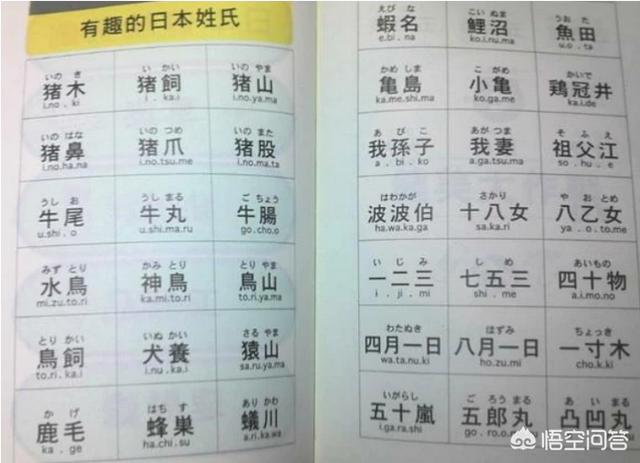 有趣的日本姓氏
いの き いかい いの やま
猪木 猪飼 猪山
i.no . ki i . ka.i i.no.ya.ma
いの はな いの つめ いの また
猪鼻 猪爪 猪股
i.no.ha.na i.no.tsu.me i.no.ma.ta
うし お うし まる ご ちょう
牛尾 牛丸 牛腸
u.shi . o u.shi.ma.ru go.cho.o
みず とり かみ とり とり やま
水鳥 神鳥 鳥山
mi.zu.to.ri ka.mi.to.ri to.ri.ya.ma
とり かい いぬ かい さる やま
鳥飼 犬養 猿山
to.ri.ka.i i.nu.ka.i sa.ru.ya.ma
か げ はち す あり かわ
鹿毛 蜂巣 蟻川
ka . ge ha.chi.su a.ri.ka.wa
えび な こい ぬま うお た
蝦名 鯉沼 魚田
e.bi.na ko.i.nu.ma u.o . ta
かめ しま こ がめ かいで
亀島 小亀 鶏冠井
ka.me.shi.ma ko.ga.me ka.i.de
あ び こ あが つま そ ふ え
我孫子 我妻 祖父江
a . bi . ko a.ga.tsu.ma so . hu . e
はわかが さかり や おとめ
波波伯 十八女 八乙女
ha.wa.ka.ga sa.ka.ri ya . o.to.me
い じ み し め あいもの
一二三 七五三 四十物
i . ji . mi shi . me a.i.mo.no
わたぬき はずみ ちょっき
四月一日 八月一日 一寸木
wa.ta.nu.ki ho.zu.mi cho.k.ki
いがらし ご ろう まる
五十嵐 五郎丸 凸凹丸
i.ga.ra.shi go . ro.o
悟空问答